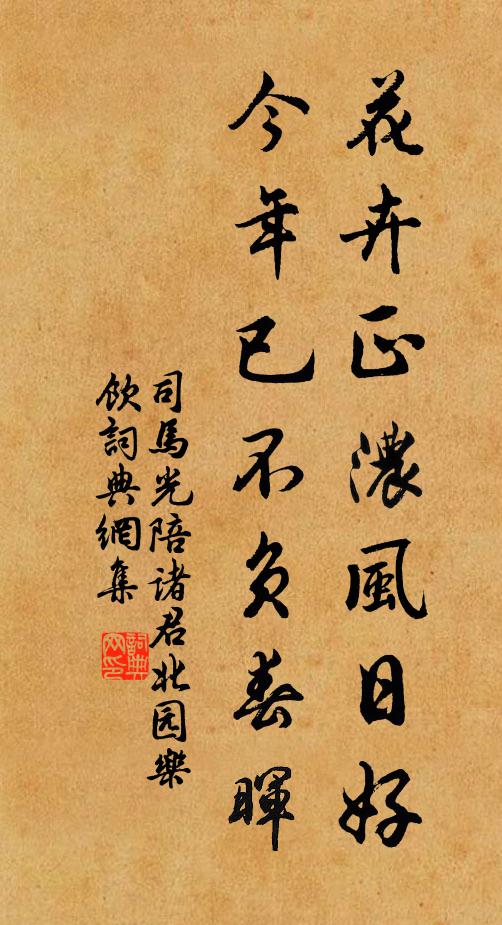 花卉正濃風日好
今年已不负春暉
司馬光陪诸君北园樂
飲詞典網集
詞典网印